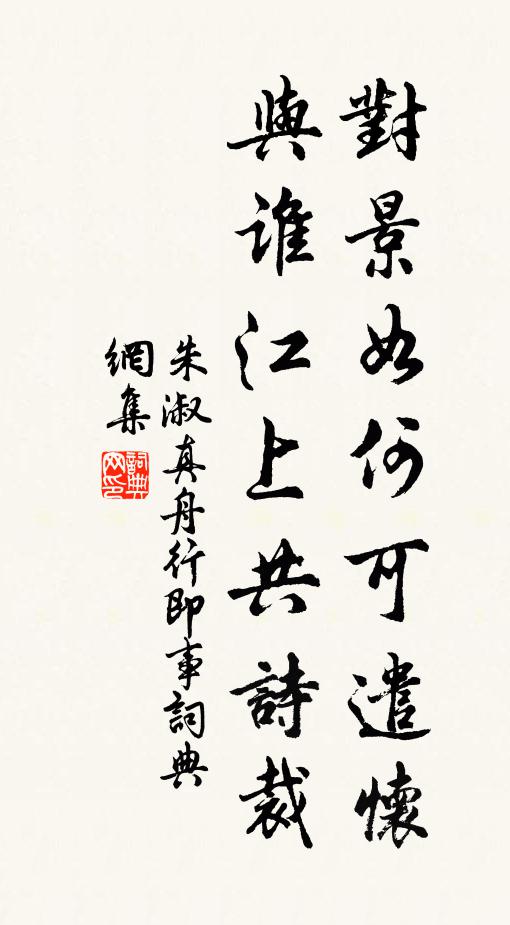 對景如何可遣懷
與誰江上共詩裁
朱淑真舟行即事詞典
網集
詞典网印